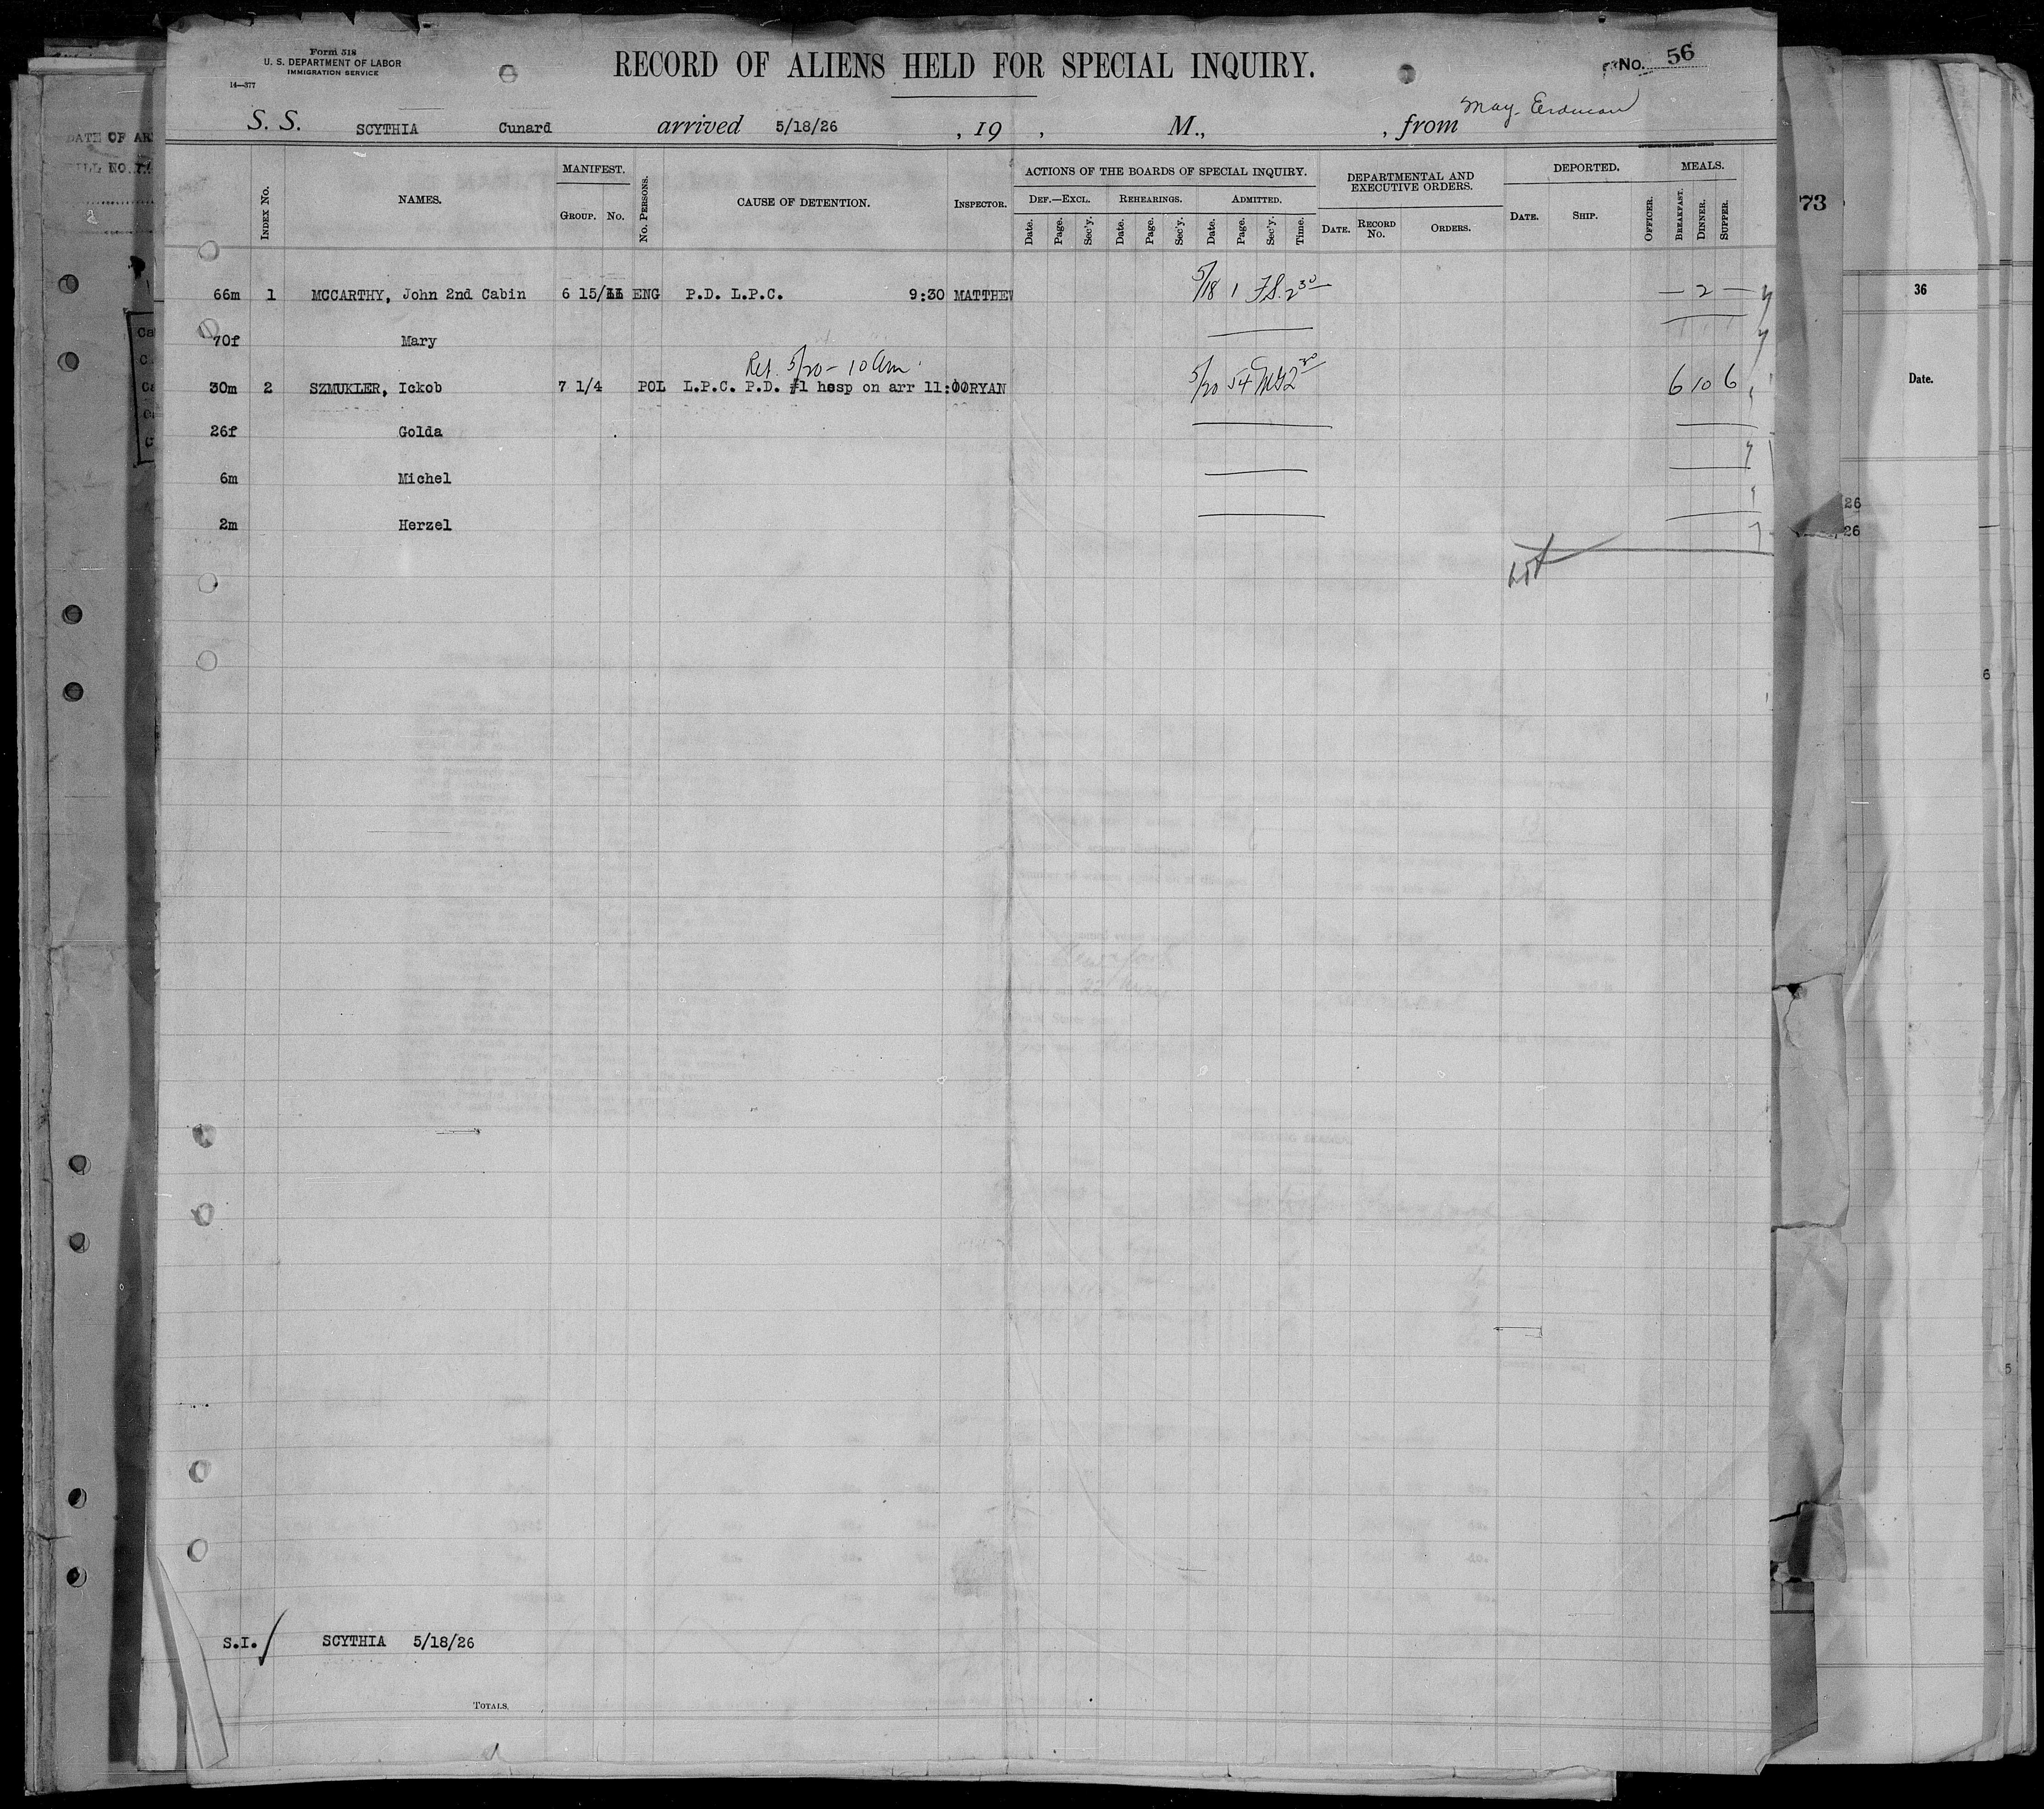 Form 518
U. S. DEPARTMENT OF LABOR
IMMIGRATION SERVICE
14—377
RECORD OF ALIENS HELD FOR SPECIAL INQUIRY.
No. 56
S. S. SCYTHIA Cunard arrived 5/18/26 , 19 , M., , from May. Erdman
GOVERNMENT PRINTING OFFICE
INDEX No. NAMES. MANIFEST. GROUP. No. No. PERSONS. CAUSE OF DETENTION. INSPECTOR.
ACTIONS OF THE BOARDS OF SPECIAL INQUIRY.
DEF.—EXCL. REHEARINGS. ADMITTED.
Date. Page. Sec'y. Date. Page. Sec'y. Date. Page. Sec'y. Time.
DEPARTMENTAL AND EXECUTIVE ORDERS.
DATE. RECORD No. ORDERS.
DEPORTED.
DATE. SHIP. OFFICER.
MEALS.
BREAKFAST. DINNER. SUPPER.
66m 1 MCCARTHY, John 2nd Cabin 6 15/ ENG P.D. L.P.C. 9:30 MATTHEW 5/18 1 F.S. 2 30 — 2 —
70f Mary
Ret. 5/20 - 10 am
30m 2 SZMUKLER, Ickob 7 1/4 POL L.P.C. P.D. #1 hosp on arr 11:00 RYAN 5/20 54 2 30 6 10 6
26f Golda
6m Michel
2m Herzel
S.I. / SCYTHIA 5/18/26
TOTALS.
DATE OF AR
BILL NO.
73
36
Date.
26
26
6
5